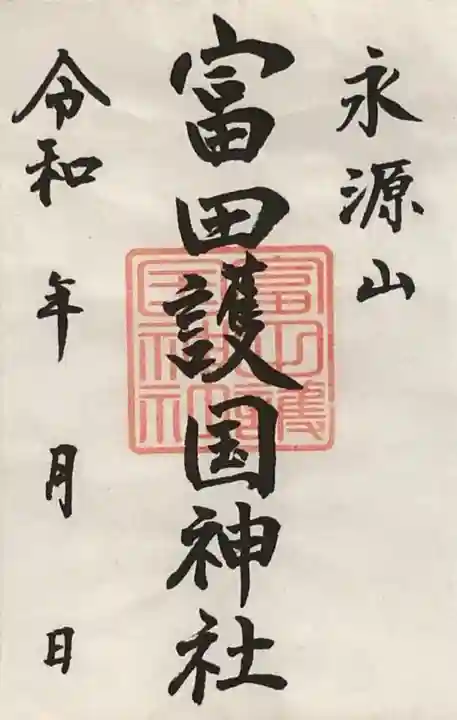 永源山
富田護国神社
令和 年 月 日
富田護国神社